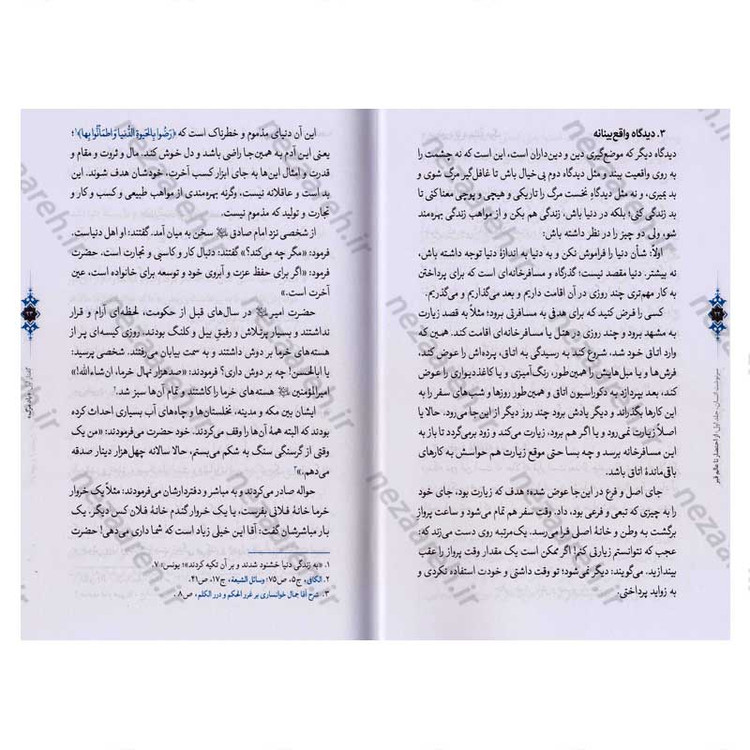 ۳. دیدگاه واقع‌بینانه
دیدگاه دیگر که موضع‌گیری دین و دین‌داران است، این است که نه چشمت را
به روی واقعیت ببند و مثل دیدگاه دوم بی‌خیال باش تا غافل‌گیر مرگ شوی و
بد بمیری، و نه مثل دیدگاه نخست مرگ را تاریکی و هیچی و پوچی معنا کنی تا
بد زندگی کنی؛ بلکه در دنیا باش، زندگی هم بکن و از مواهب زندگی بهره‌مند
شو، ولی دو چیز را در نظر داشته باش:
اولاً: شأن دنیا را فراموش نکن و به دنیا به اندازهٔ دنیا توجه داشته باش،
نه بیشتر. دنیا مقصد نیست؛ گذرگاه و مسافرخانه‌ای است که برای پرداختن
به کار مهم‌تری چند روزی در آن اقامت داریم و بعد می‌گذاریم و می‌گذریم.
کسی را فرض کنید که برای هدفی به مسافرتی برود؛ مثلاً به قصد زیارت
به مشهد برود و چند روزی در هتل یا مسافرخانه‌ای اقامت کند. همین که
وارد اتاق خود شد، شروع کند به رسیدگی به اتاق، پرده‌اش را عوض کند،
فرش‌ها و یا مبل‌هایش را همین‌طور، رنگ‌آمیزی و یا کاغذدیواری را عوض
کند، بعد بپردازد به دکوراسیون اتاق و همین‌طور روزها و شب‌های سفر را به
این کارها بگذراند و دیگر یادش برود چند روز دیگر از این‌جا می‌رود. حالا یا
اصلاً زیارت نمی‌رود و یا اگر هم برود، زیارت می‌کند و زود برمی‌گردد تا باز به
این مسافرخانه برسد و چه بسا حتی موقع زیارت هم حواسش به کارهای
باقی‌ماندهٔ اتاق باشد.
جای اصل و فرع در این‌جا عوض شده؛ هدف که زیارت بود، جای خود
را به چیزی که تبعی و فرعی بود، داد. وقت سفر هم تمام می‌شود و ساعت پرواز
برگشت به وطن و خانهٔ اصلی فرا می‌رسد. یک‌مرتبه روی دست می‌زند که:
عجب که نتوانستم زیارتی کنم! اگر ممکن است یک مقدار وقت پرواز را عقب
بیندازید. می‌گویند: دیگر نمی‌شود؛ تو وقت داشتی و خودت استفاده نکردی و
به زواید پرداختی.
سرنوشت انسان، جلد اول: از احتضار تا عالم قبر
این آن دنیای مذموم و خطرناک است که ﴿رَضُوا بِالحَیوةِ الدُّنیا وَاطمَأَنّوا بِها﴾؛۱
یعنی این آدم به همین‌جا راضی باشد و دل خوش کند. مال و ثروت و مقام و
قدرت و امثال این‌ها به جای ابزار کسب آخرت، خودشان هدف شوند. این
بد است و عاقلانه نیست، وگرنه بهره‌مندی از مواهب طبیعی و کسب و کار و
تجارت و تولید که مذموم نیست.
از شخصی نزد امام صادق سخن به میان آمد. گفتند: او اهل دنیاست.
فرمود: «مگر چه می‌کند؟» گفتند: دنبال کار و کاسبی و تجارت است. حضرت
فرمود: «اگر برای حفظ عزت و آبروی خود و توسعه برای خانواده است، عین
آخرت است.»
حضرت امیر در سال‌های قبل از حکومت، لحظه‌ای آرام و قرار
نداشتند و بسیار پرتلاش و رفیق بیل و کلنگ بودند. روزی کیسه‌ای پر از
هسته‌های خرما بر دوش داشتند و به سمت بیابان می‌رفتند. شخصی پرسید:
یا اباالحسن! چه بر دوش داری؟ فرمودند: «صدهزار نهال خرما، ان‌شاءالله!»
امیرالمؤمنین هسته‌های خرما را کاشتند و تمام آن‌ها سبز شد.۲
ایشان بین مکه و مدینه، نخلستان‌ها و چاه‌های آب بسیاری احداث کرده
بودند که البته همهٔ آن‌ها را وقف می‌کردند. خود حضرت می‌فرمودند: «من یک
وقتی از گرسنگی سنگ به شکم می‌بستم، حالا سالانه چهل‌هزار دینار صدقه
می‌دهم.»۳
حواله صادر می‌کردند و به مباشر و دفتردارشان می‌فرمودند: مثلاً یک خروار
خرما خانهٔ فلانی بفرست، یا یک خروار گندم خانهٔ فلان کس دیگر. یک
بار مباشرشان گفت: آقا این خیلی زیاد است که شما داری می‌دهی! حضرت
۱. «به زندگی دنیا خشنود شدند و بر آن تکیه کردند»؛ یونس/ ۷.
۲. الکافی، ج۵، ص۷۵؛ وسائل الشیعة، ج۱۷، ص۴۱.
۳. شرح آقا جمال خوانساری بر غرر الحکم و درر الکلم، ص۸.
nezaareh.ir